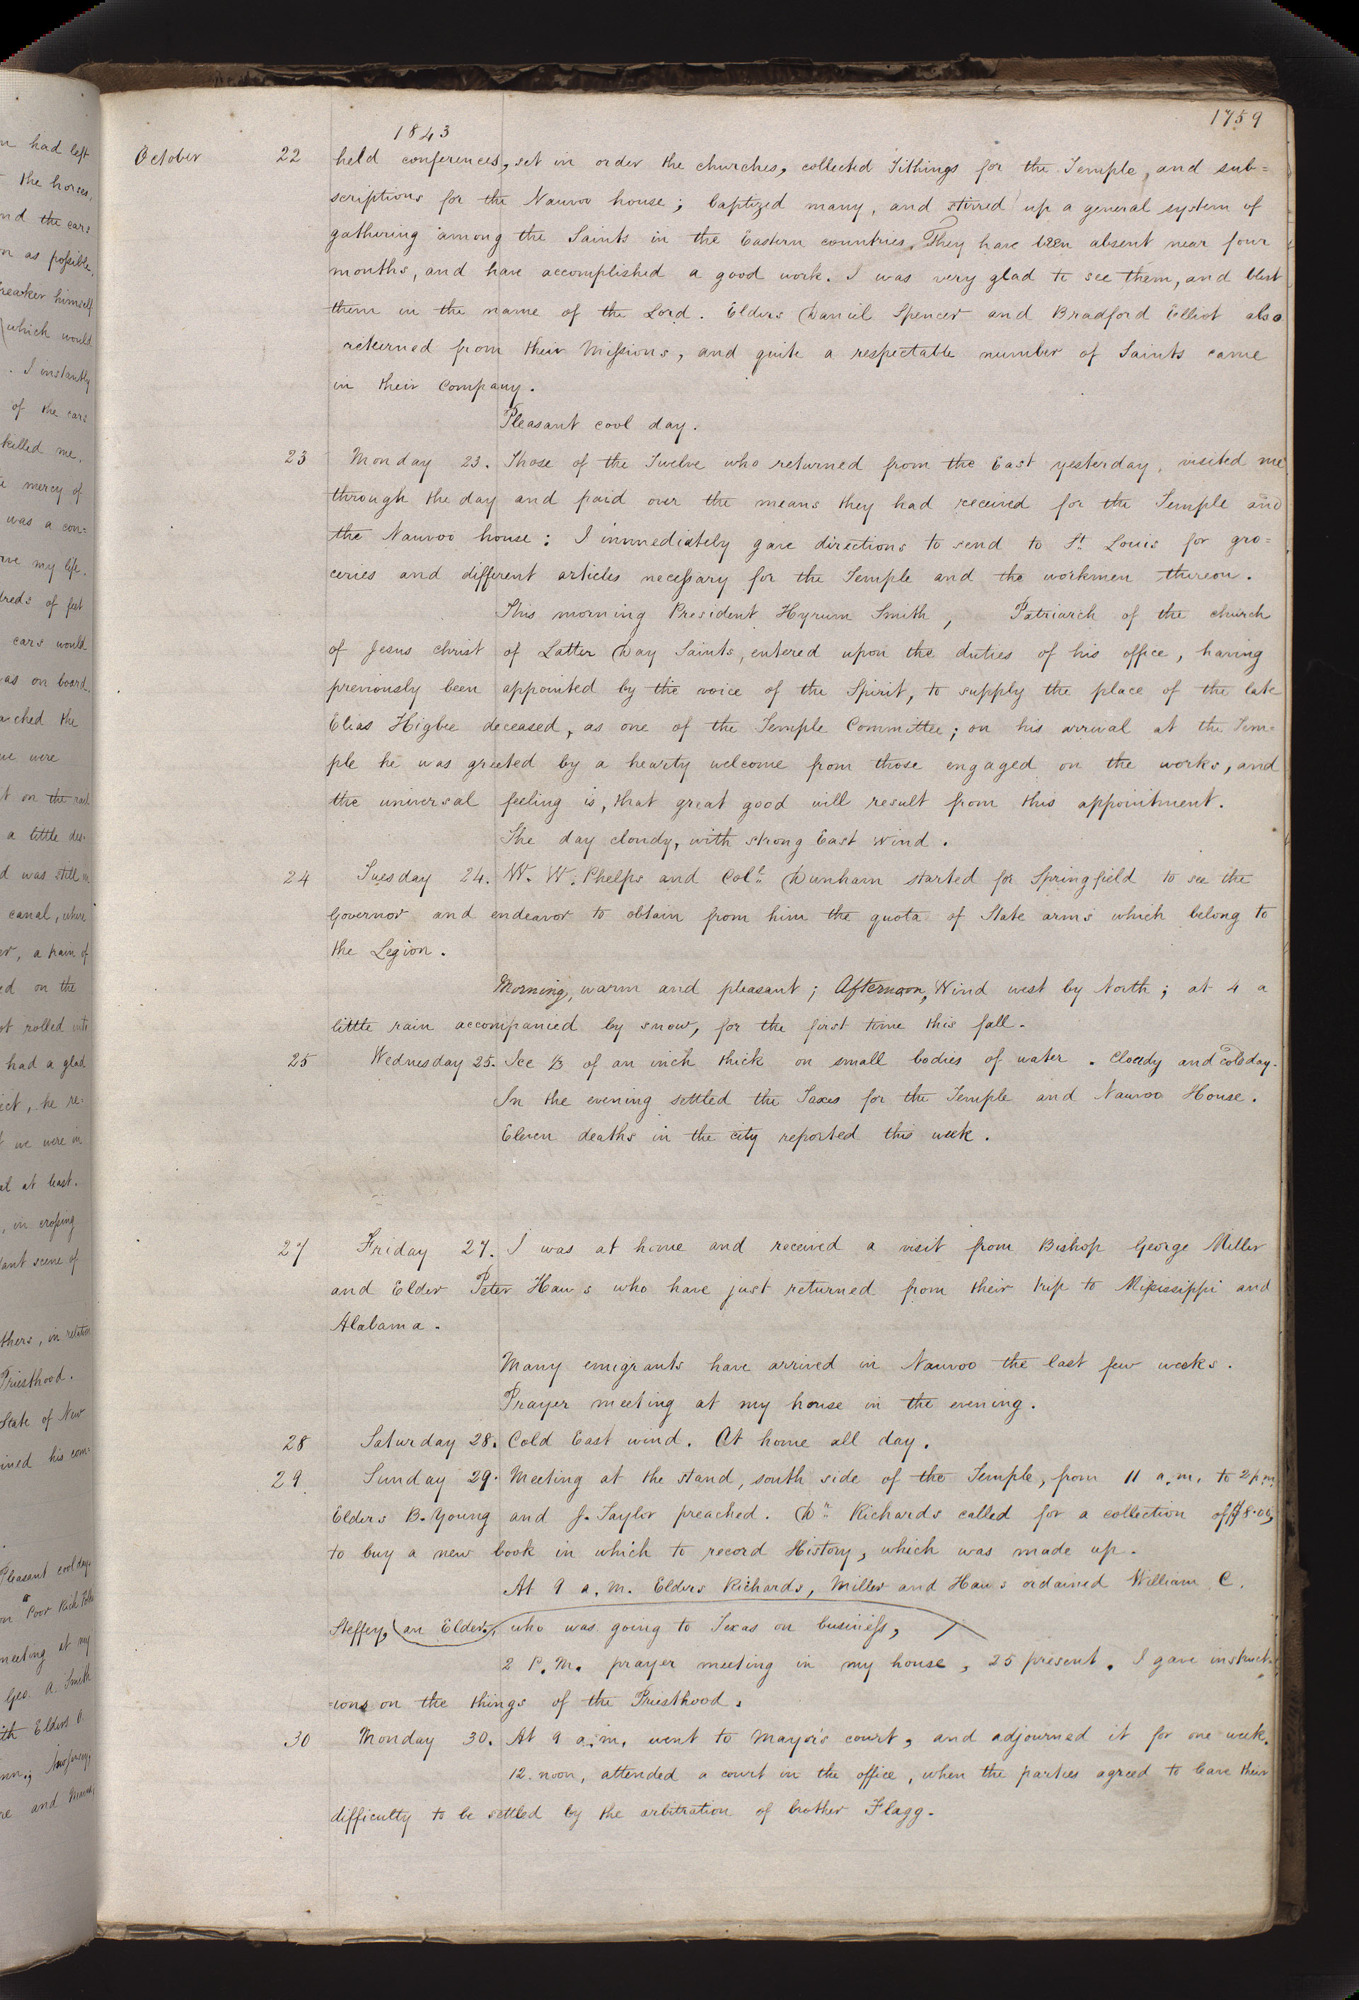 1759
1843
October 22 held conferences, set in order the churches, collected Tithings for the Temple, and sub=
scriptions for the Nauvoo house; baptized many, and stirred up a general system of
gathering among the Saints in the Eastern countries. They have been absent near four
months, and have accomplished a good work. I was very glad to see them, and blest
them in the name of the Lord. Elders Daniel Spencer and Bradford Elliot also
returned from their Missions, and quite a respectable number of Saints came
in their company.
Pleasant cool day.
23 Monday 23. Those of the Twelve who returned from the East yesterday, visited me
through the day and paid over the means they had received for the Temple and
the Nauvoo house: I immediately gave directions to send to St. Louis for gro=
ceries and different articles necessary for the Temple and the workmen thereon.
This morning President Hyrum Smith, Patriarch of the church
of Jesus christ of Latter Day Saints, entered upon the duties of his office, having
previously been appointed by the voice of the Spirit, to supply the place of the late
Elias Higbee deceased, as one of the Temple Committee; on his arrival at the Tem=
ple he was greeted by a hearty welcome from those engaged on the works, and
the universal feeling is, that great good will result from this appointment.
The day cloudy, with strong East wind.
24 Tuesday 24. W. W. Phelps and Coll. Dunham started for Springfield to see the
Governor and endeavor to obtain from him the quota of State arms which belong to
the Legion.
Morning, warm and pleasant; Afternoon, Wind west by North; at 4 a
little rain accompanied by snow, for the first time this fall.
25 Wednesday 25. Ice of an inch thick on small bodies of water. Cloudy and cold day.
In the evening settled the Taxes for the Temple and Nauvoo House.
Eleven deaths in the city reported this week.
27 Friday 27. I was at home and received a visit from Bishop George Miller
and Elder Peter Haws who have just returned from their trip to Mississippi and
Alabama.
Many emigrants have arrived in Nauvoo the last few weeks.
Prayer meeting at my house in the evening.
28 Saturday 28. Cold East wind. At home all day.
29 Sunday 29. Meeting at the stand, south side of the Temple, from 11 a.m. to 2 p.m.
Elders B. Young and J. Taylor preached. Dr. Richards called for a collection of
to buy a new book in which to record History, which was made up.
At 9 a.m. Elders Richards, Miller and Haws ordained William C.
Steffey, (an Elder), who was going to Texas on business,
2 P.M. prayer meeting in my house, 25 present. I gave instruct=
ions on the things of the Priesthood.
30 Monday 30. At 9 a.m. went to Mayor's court, and adjourned it for one week.
12 noon, attended a court in the office, when the parties agreed to leave their
difficulty to be settled by the arbitration of brother Flagg.
had left
the horses,
and the cars
as possible.
himself
which would
. I instantly
of the cars
killed me.
mercy of
was a con=
my life.
of feet
cars would
as on board.
the
were
on the rail
a little
was still
canal, where
, a train of
on the
rolled into
had a glad
, he re=
we were in
at least.
, in
scene of
, in relation
Priesthood.
State of New
his com=
Pleasant cool day.
Poor Rich
meeting at my
Geo. A. Smith
Elders O.
New Jersey,
and